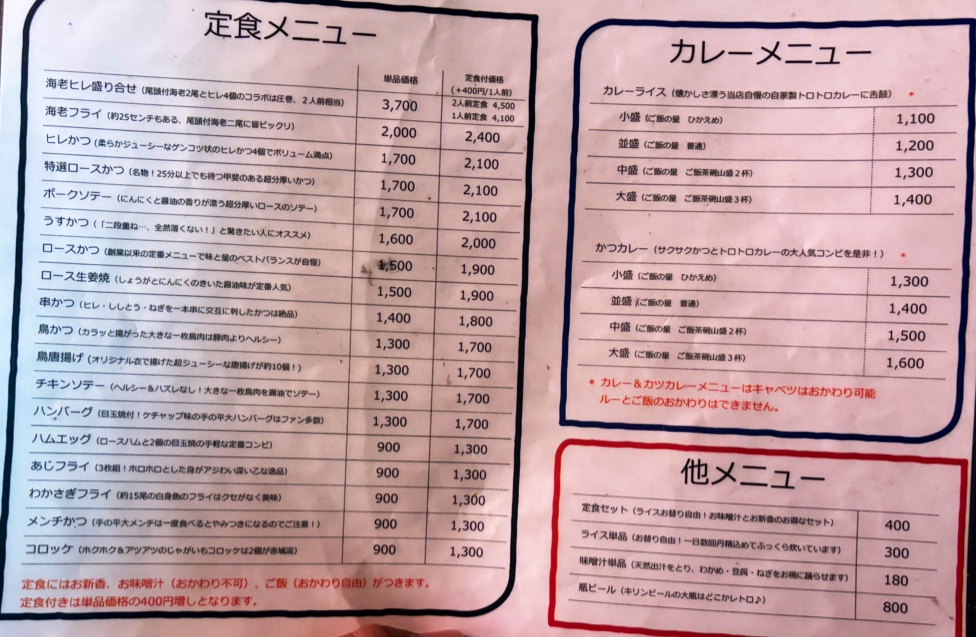 定食メニュー
単品価格 定食付価格
(+400円/1人前)
海老ヒレ盛り合せ (尾頭付海老2尾とヒレ4個のコラボは圧巻、2人前相当) 3,700 2人前定食 4,500
1人前定食 4,100
海老フライ (約25センチもある、尾頭付海老二尾に皆ビックリ) 2,000 2,400
ヒレかつ (柔らかジューシーなゲンコツ状のヒレかつ4個でボリューム満点) 1,700 2,100
特選ロースかつ (名物!25分以上でも待つ甲斐のある超分厚いかつ) 1,700 2,100
ポークソテー (にんにくと醤油の香りが漂う超分厚いロースのソテー) 1,700 2,100
うすかつ (「二段重ね…、全然薄くない!」と驚きたい人にオススメ) 1,600 2,000
ロースかつ (創業以来の定番メニューで味と量のベストバランスが自慢) 1,500 1,900
ロース生姜焼 (しょうがとにんにくのきいた醤油味が定番人気) 1,500 1,900
串かつ (ヒレ・ししとう・ねぎを一本串に交互に刺したかつは絶品) 1,400 1,800
鳥かつ (カラッと揚がった大きな一枚鳥肉は豚肉よりヘルシー) 1,300 1,700
鳥唐揚げ (オリジナル衣で揚げた超ジューシーな唐揚げが約10個!) 1,300 1,700
チキンソテー (ヘルシー&ハズレなし!大きな一枚鳥肉を醤油でソテー) 1,300 1,700
ハンバーグ (目玉焼付!ケチャップ味の手の平大ハンバーグはファン多数) 1,300 1,700
ハムエッグ (ロースハムと2個の目玉焼の手軽な定番コンビ) 900 1,300
あじフライ (3枚組!ホロホロとした身がアジわい深い乙な逸品) 900 1,300
わかさぎフライ (約15尾の白身魚のフライはクセがなく美味) 900 1,300
メンチかつ (手の平大メンチは一度食べるとやみつきになるのでご注意!) 900 1,300
コロッケ (ホクホク&アツアツのじゃがいもコロッケは2個が赤城流) 900 1,300
定食にはお新香、お味噌汁(おかわり不可)、ご飯(おかわり自由)がつきます。
定食付きは単品価格の400円増しとなります。
カレーメニュー
カレーライス (懐かしさ漂う当店自慢の自家製トロトロカレーに舌鼓) *
小盛 (ご飯の量 ひかえめ) 1,100
並盛 (ご飯の量 普通) 1,200
中盛 (ご飯の量 ご飯茶碗山盛2杯) 1,300
大盛 (ご飯の量 ご飯茶碗山盛3杯) 1,400
かつカレー (サクサクかつとトロトロカレーの大人気コンビを是非!) *
小盛 (ご飯の量 ひかえめ) 1,300
並盛 (ご飯の量 普通) 1,400
中盛 (ご飯の量 ご飯茶碗山盛2杯) 1,500
大盛 (ご飯の量 ご飯茶碗山盛3杯) 1,600
* カレー&カツカレーメニューはキャベツはおかわり可能
ルーとご飯のおかわりはできません。
他メニュー
定食セット (ライスお替り自由!お味噌汁とお新香のお得なセット) 400
ライス単品 (お替り自由!一日数回丹精込めてふっくら炊いています) 300
味噌汁単品 (天然出汁をとり、わかめ・豆腐・ねぎをお椀に踊らせます) 180
瓶ビール (キリンビールの大瓶はどこかレトロ♪) 800